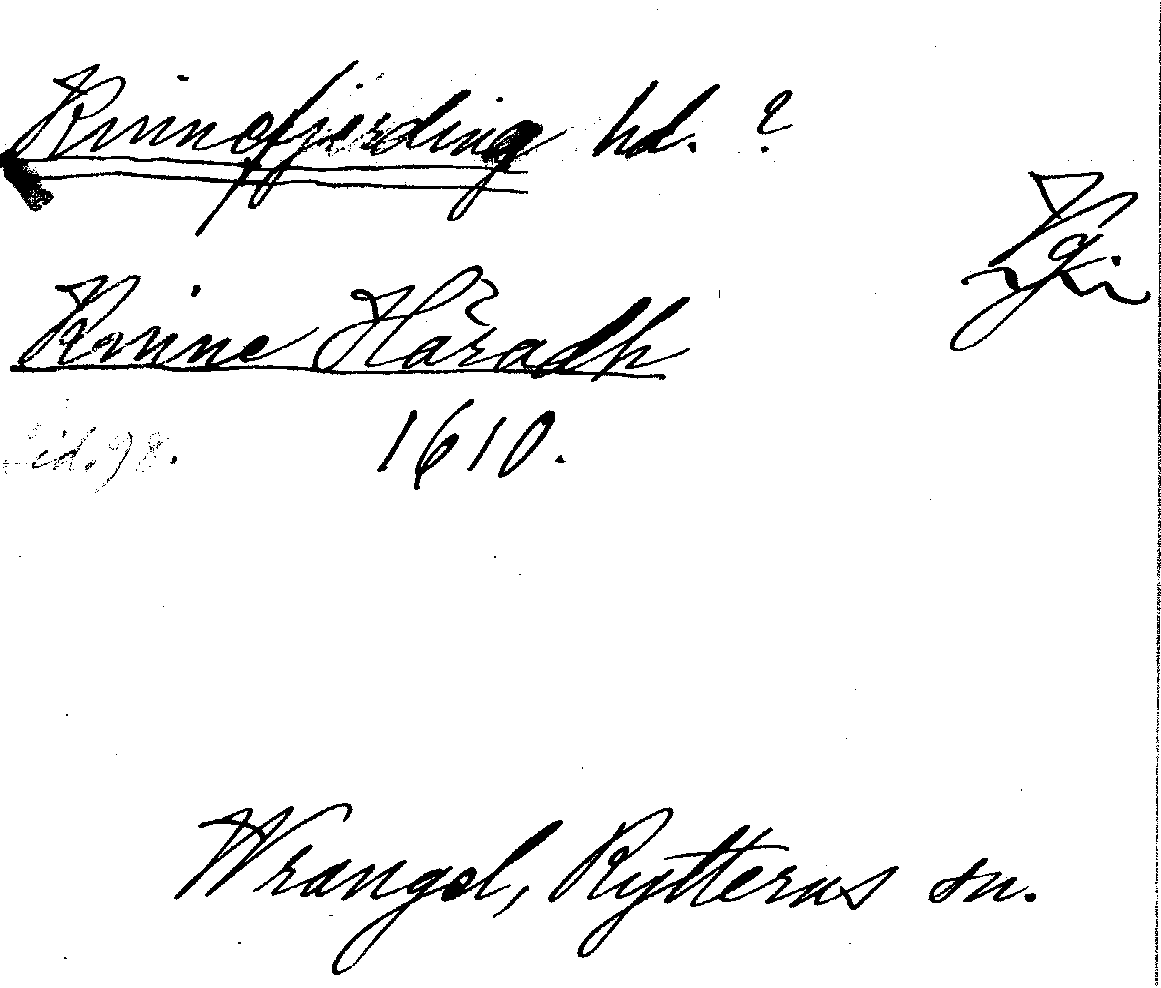 Kinnefjerding hd. ?
Vg.
Kinne Häradh
Sid. 98. 1610.
Wrangel, Rytterus sn.